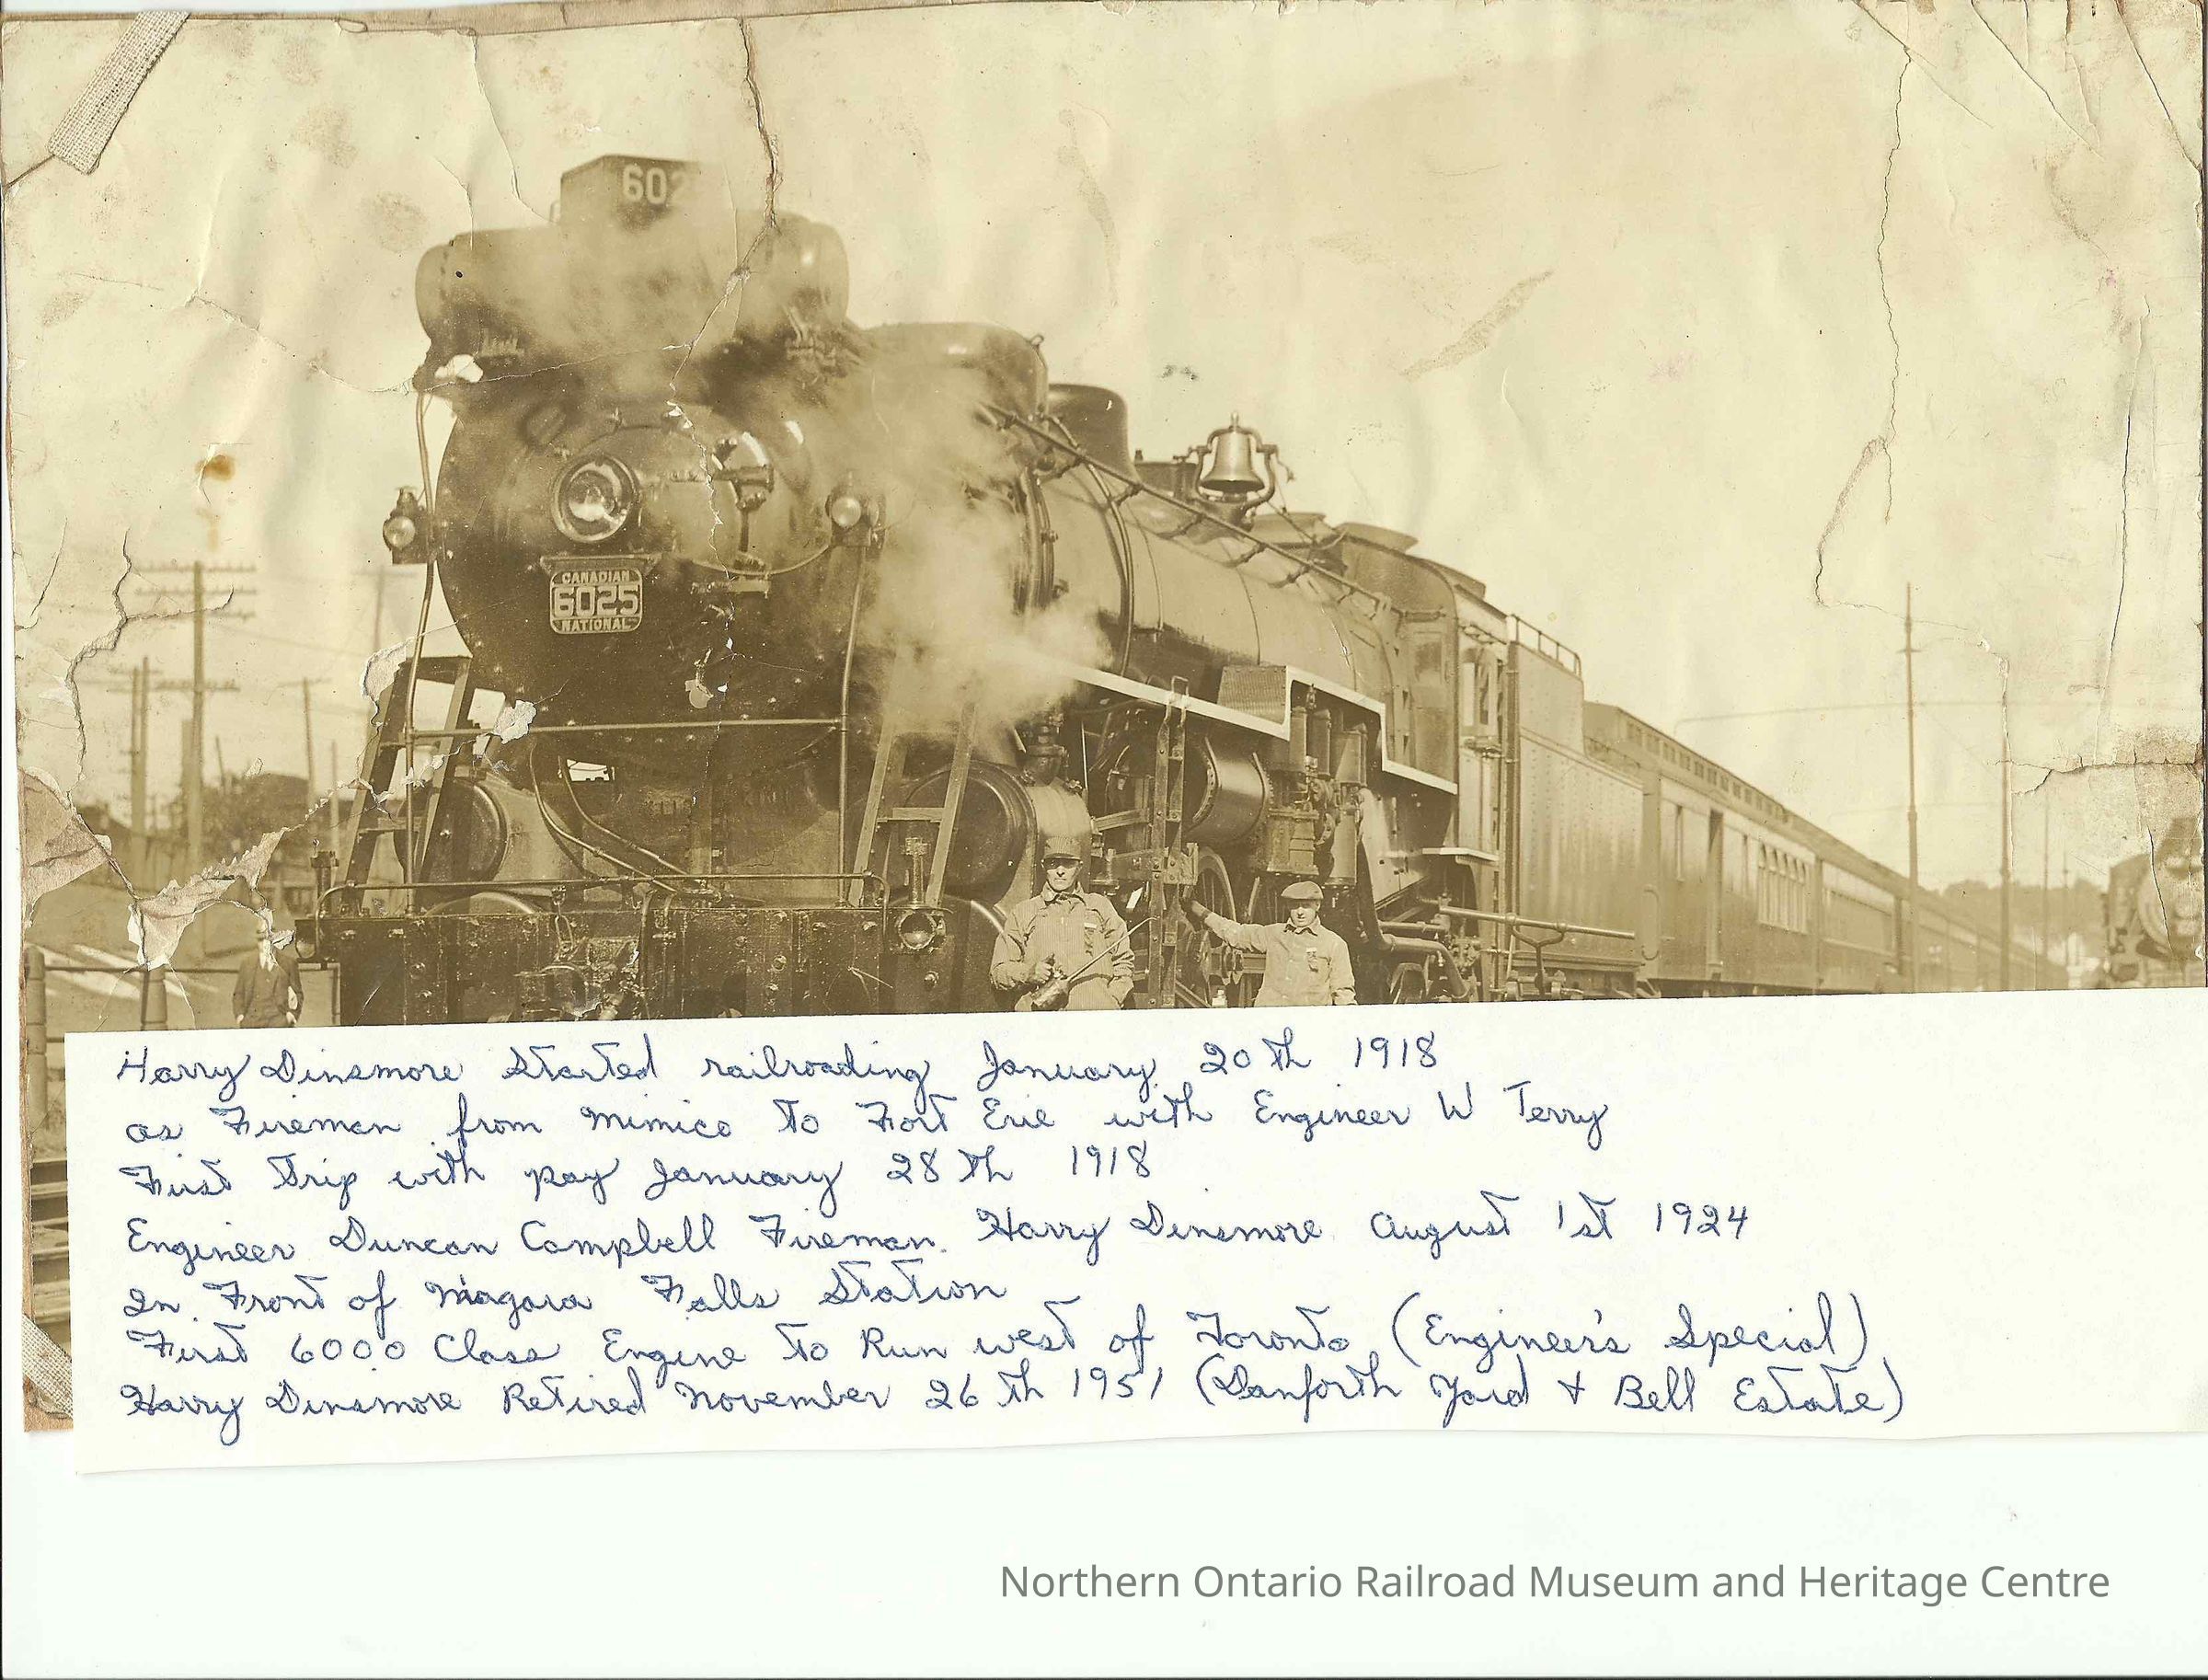 602
CANADIAN
6025
NATIONAL
Harry Dinsmore Started railroading January 20th 1918
as Fireman from Mimico to Fort Erie with Engineer W Terry
First Trip with pay January 28th 1918
Engineer Duncan Campbell Fireman Harry Dinsmore August 1st 1924
In Front of Niagara Falls Station
First 6000 Class Engine to Run west of Toronto (Engineer's Special)
Harry Dinsmore Retired November 26th 1951 (Danforth Yard + Bell Estate)
Northern Ontario Railroad Museum and Heritage Centre